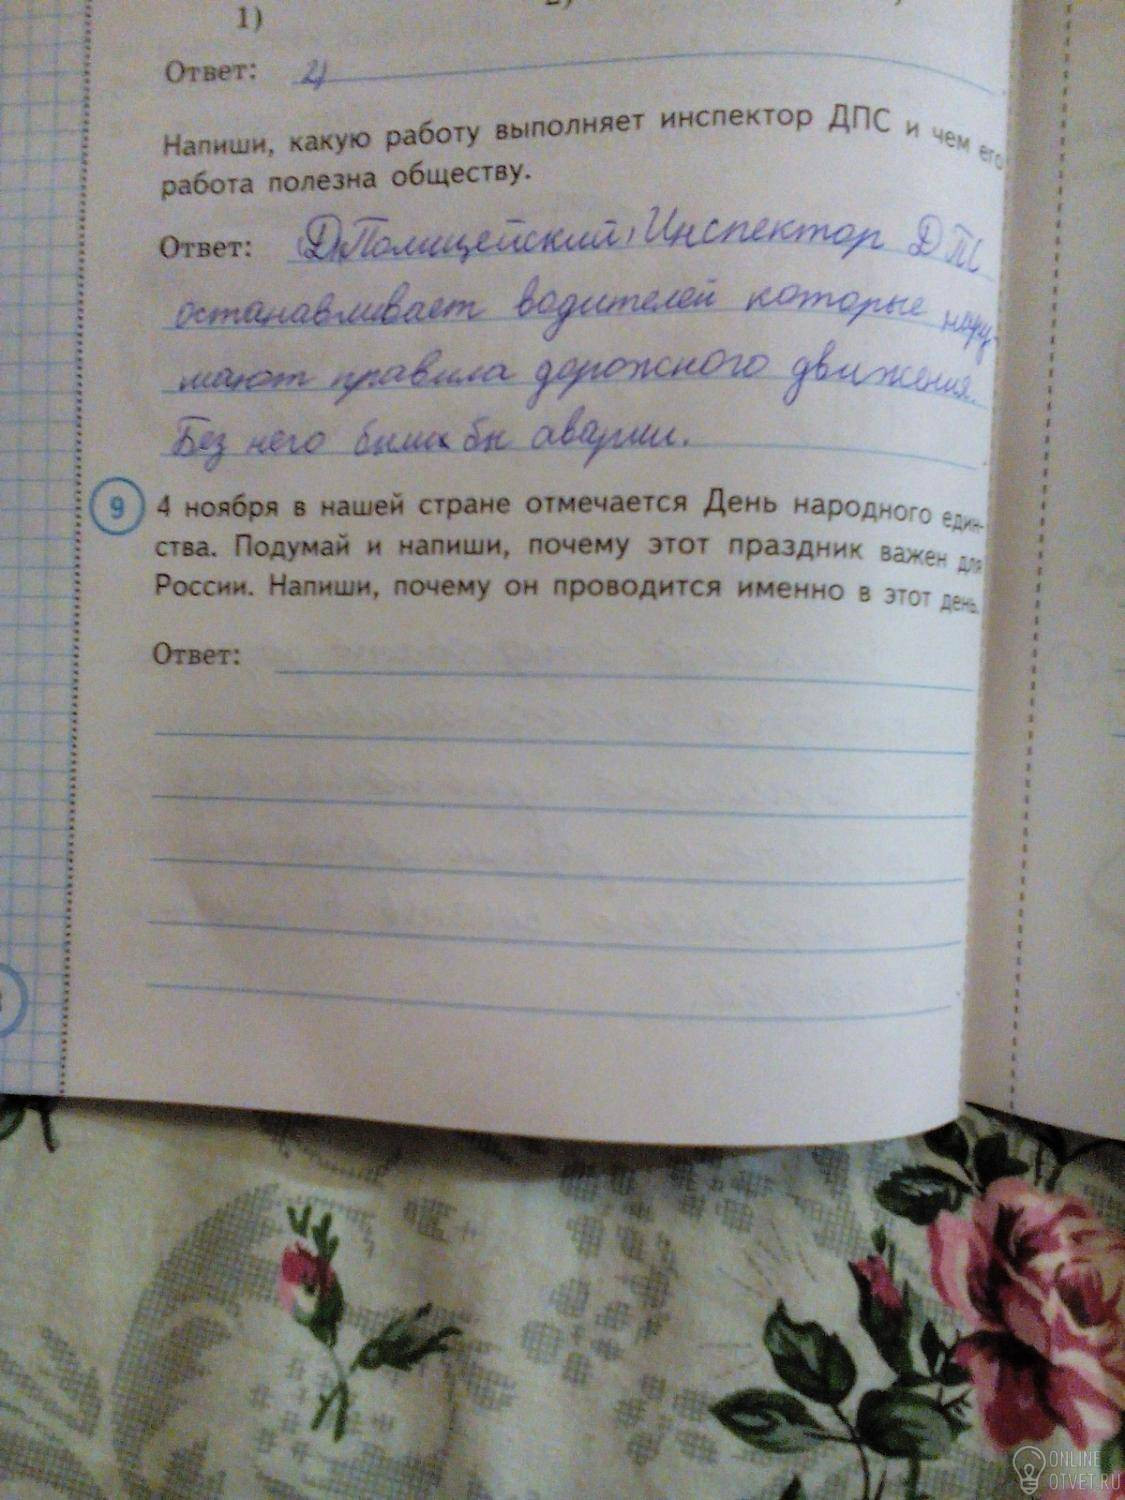 1)
2)
Ответ: 2)
Напиши, какую работу выполняет инспектор ДПС и чем его
работа полезна обществу.
Ответ: Полицейский, Инспектор
останавливает водителей которые нару-
шают правила дорожного движения.
Без него были бы аварии.
9 4 ноября в нашей стране отмечается День народного един-
ства. Подумай и напиши, почему этот праздник важен для
России. Напиши, почему он проводится именно в этот день.
Ответ:
ONLINE
OTVET.RU